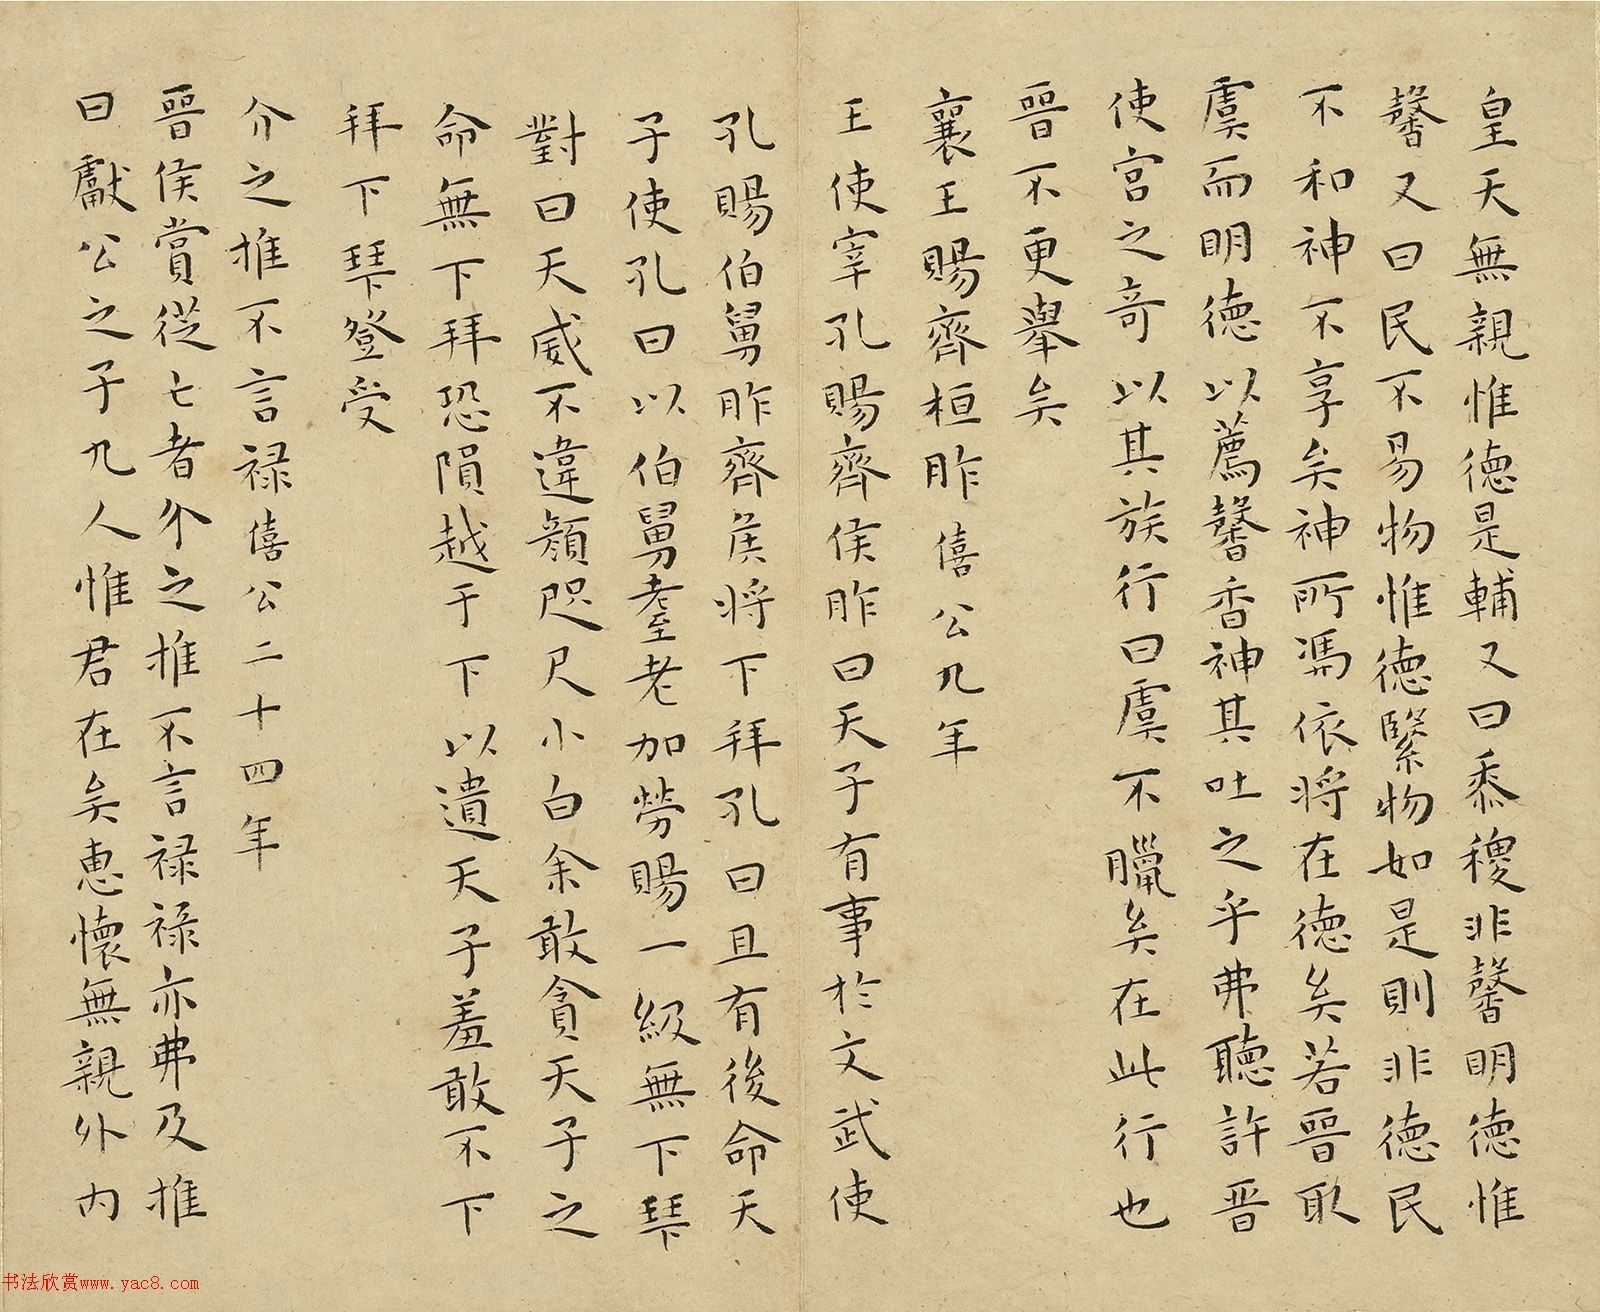 皇天無親惟德是輔又曰黍稷非馨明德惟
馨又曰民不易物惟德繄物如是則非德民
不和神不享矣神所馮依將在德矣若晉取
虞而明德以薦馨香神其吐之乎弗聽許晉
使宮之奇以其族行曰虞不臘矣在此行也
晉不更舉矣
襄王賜齊桓胙 僖公九年
王使宰孔賜齊侯胙曰天子有事於文武使
孔賜伯舅胙齊侯將下拜孔曰且有後命天
子使孔曰以伯舅耋老加勞賜一級無下拜
對曰天威不違顏咫尺小白余敢貪天子之
命無下拜恐隕越于下以遺天子羞敢不下
拜下拜登受
介之推不言祿 僖公二十四年
晉侯賞從亡者介之推不言祿祿亦弗及推
曰獻公之子九人惟君在矣惠懷無親外內
书法欣赏www.yac8.com